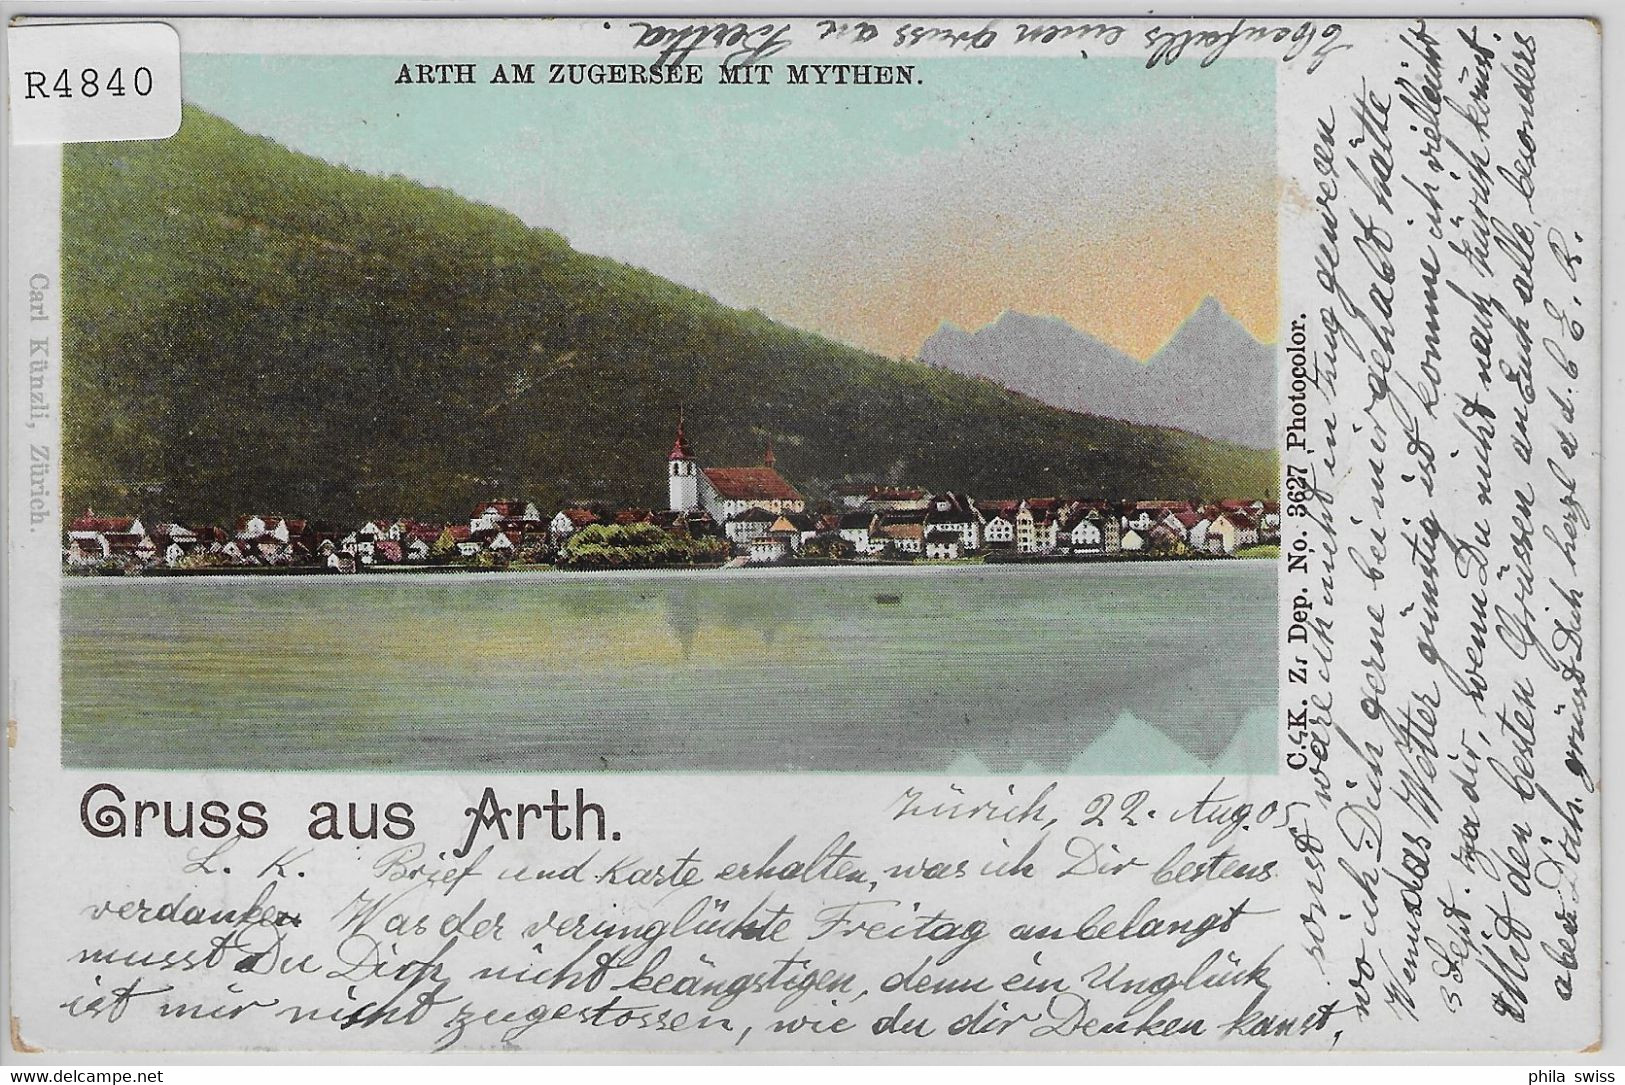 R4840
ARTH AM ZUGERSEE MIT MYTHEN.
Carl Künzli, Zürich.
C. K. Z. Dep. No. 3627 Photocolor.
Gruss aus Arth.
Zürich, 22. Aug. 05
L. K. Brief und Karte erhalten, was ich Dir bestens
verdanke. Was der verunglückte Freitag anbelangt
musst Du Dich nicht beängstigen, denn ein Unglück
ist mir nicht zugestossen, wie du dir Denken kanst,
sonst wäre ich nicht in Zug gewesen
wo ich Dich gerne bei mir gehabt hätte
Wenn das Wetter günstig ist komme ich vielleicht
3 Sept. zu dir, wenn Du nicht nach Zürich könst.
Mit den besten Grüssen an Euch alle, besonders
aber Dich. grüsst Dich herzl a d. b E. R.
Ebenfalls einen Gruss an Bertha.
phila swiss